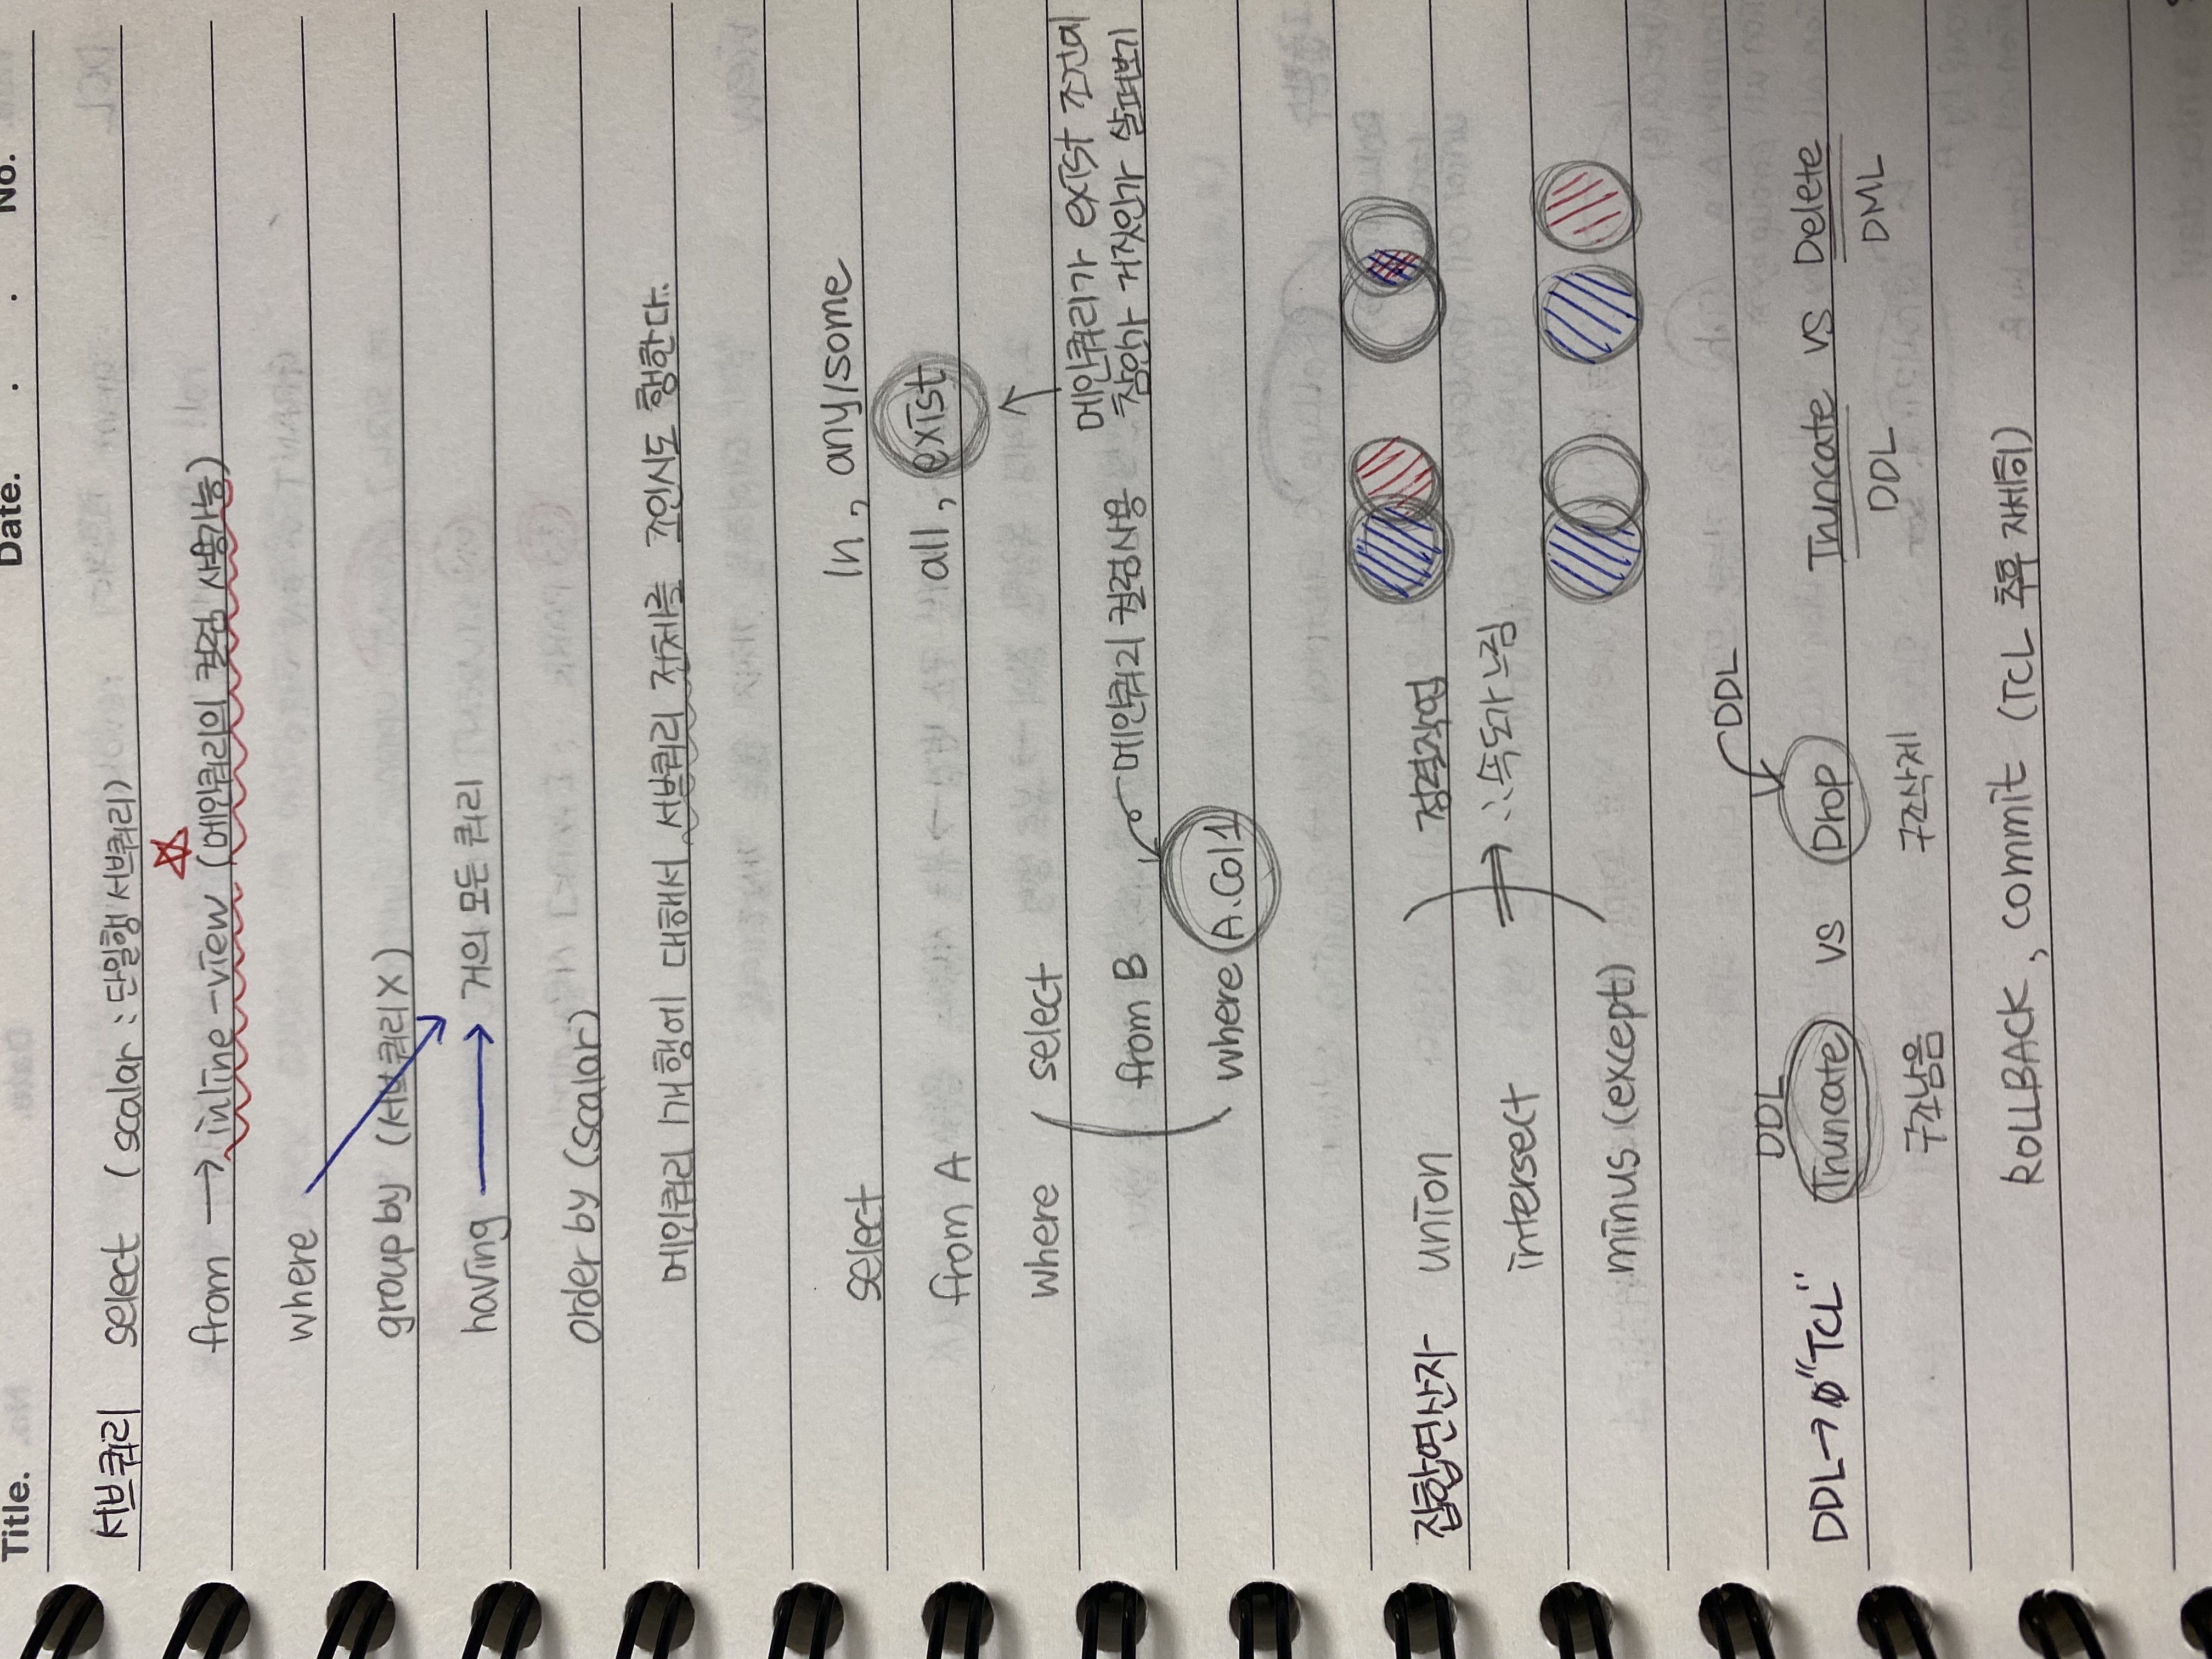 Title. Date. . . No.
서브쿼리 select (scalar : 단일행 서브쿼리)
from → inline-view (메인쿼리의 컬럼 사용가능)
where
group by (서브쿼리X)
having → 거의 모든 쿼리
order by (scalar)
메인쿼리 1개 행에 대해서 서브쿼리 전체를 조인시도 행한다.
select
from A
where
select
from B
where A.Col1
메인쿼리 컬럼사용
In, any/some
all, exist
메인쿼리가 exist 조건에
참인가 거짓인가 살펴보기
집합연산자 union
intersect
minus (except)
정렬작업
∴속도가 느림
DDL
DDL
DDL→ "TCL" Truncate vs Drop Truncate vs Delete
DDL DML
구조남음 구조삭제
ROLLBACK, commit (TCL 추후 자세히)